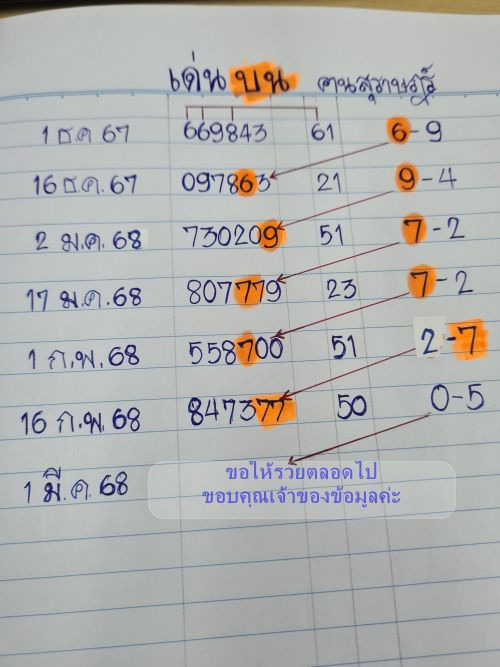 เด่น บน คนสุราษฎร์
1 ธค 67 669843 61 6-9
16 ธค. 67 097863 21 9-4
2 ม.ค. 68 730209 51 7-2
17 ม.ค. 68 807779 23 7-2
1 ก.พ. 68 558700 51 2-7
16 ก.พ. 68 847377 50 0-5
1 มี.ค. 68
ขอให้รวยตลอดไป
ขอบคุณเจ้าของข้อมูลค่ะ